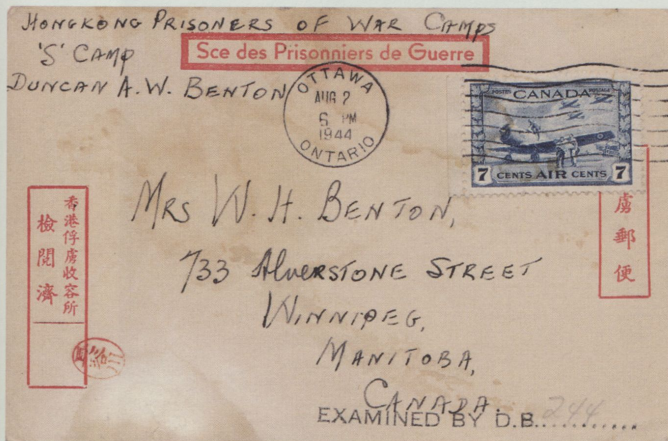 HONGKONG PRISONERS OF WAR CAMPS
'S' CAMP
Sce des Prisonniers de Guerre
DUNCAN A.W. BENTON
OTTAWA
AUG 2
6 PM
1944
ONTARIO
POSTES CANADA POSTAGE
7 CENTS AIR CENTS 7
香港俘虜收容所
檢閲濟
虜郵便
MRS W. H. BENTON,
733 ALVERSTONE STREET
WINNIPEG,
MANITOBA,
CANADA.
EXAMINED BY D.B. 244